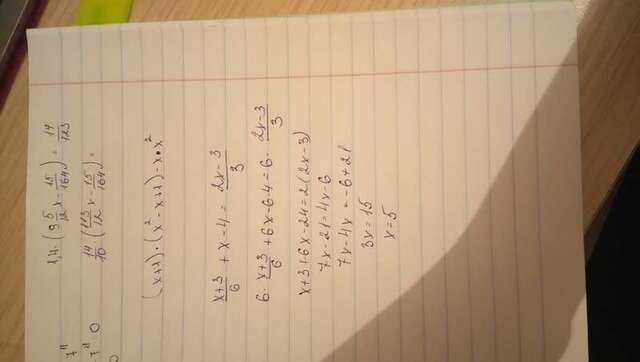 1,4 · (9 5/12 x - 15/164) = 17/123
7"
14/10 (113/12 x - 15/164) =
-7" 0
(x+1) · (x² - x + 1) - x · x²
x+3/6 + x - 4 = 2x-3/3
6 · x+3/6 + 6x - 6·4 = 6 · 2x-3/3
x+3+6x-24=2(2x-3)
7x-21=4x-6
7x-4x=-6+21
3x=15
x=5